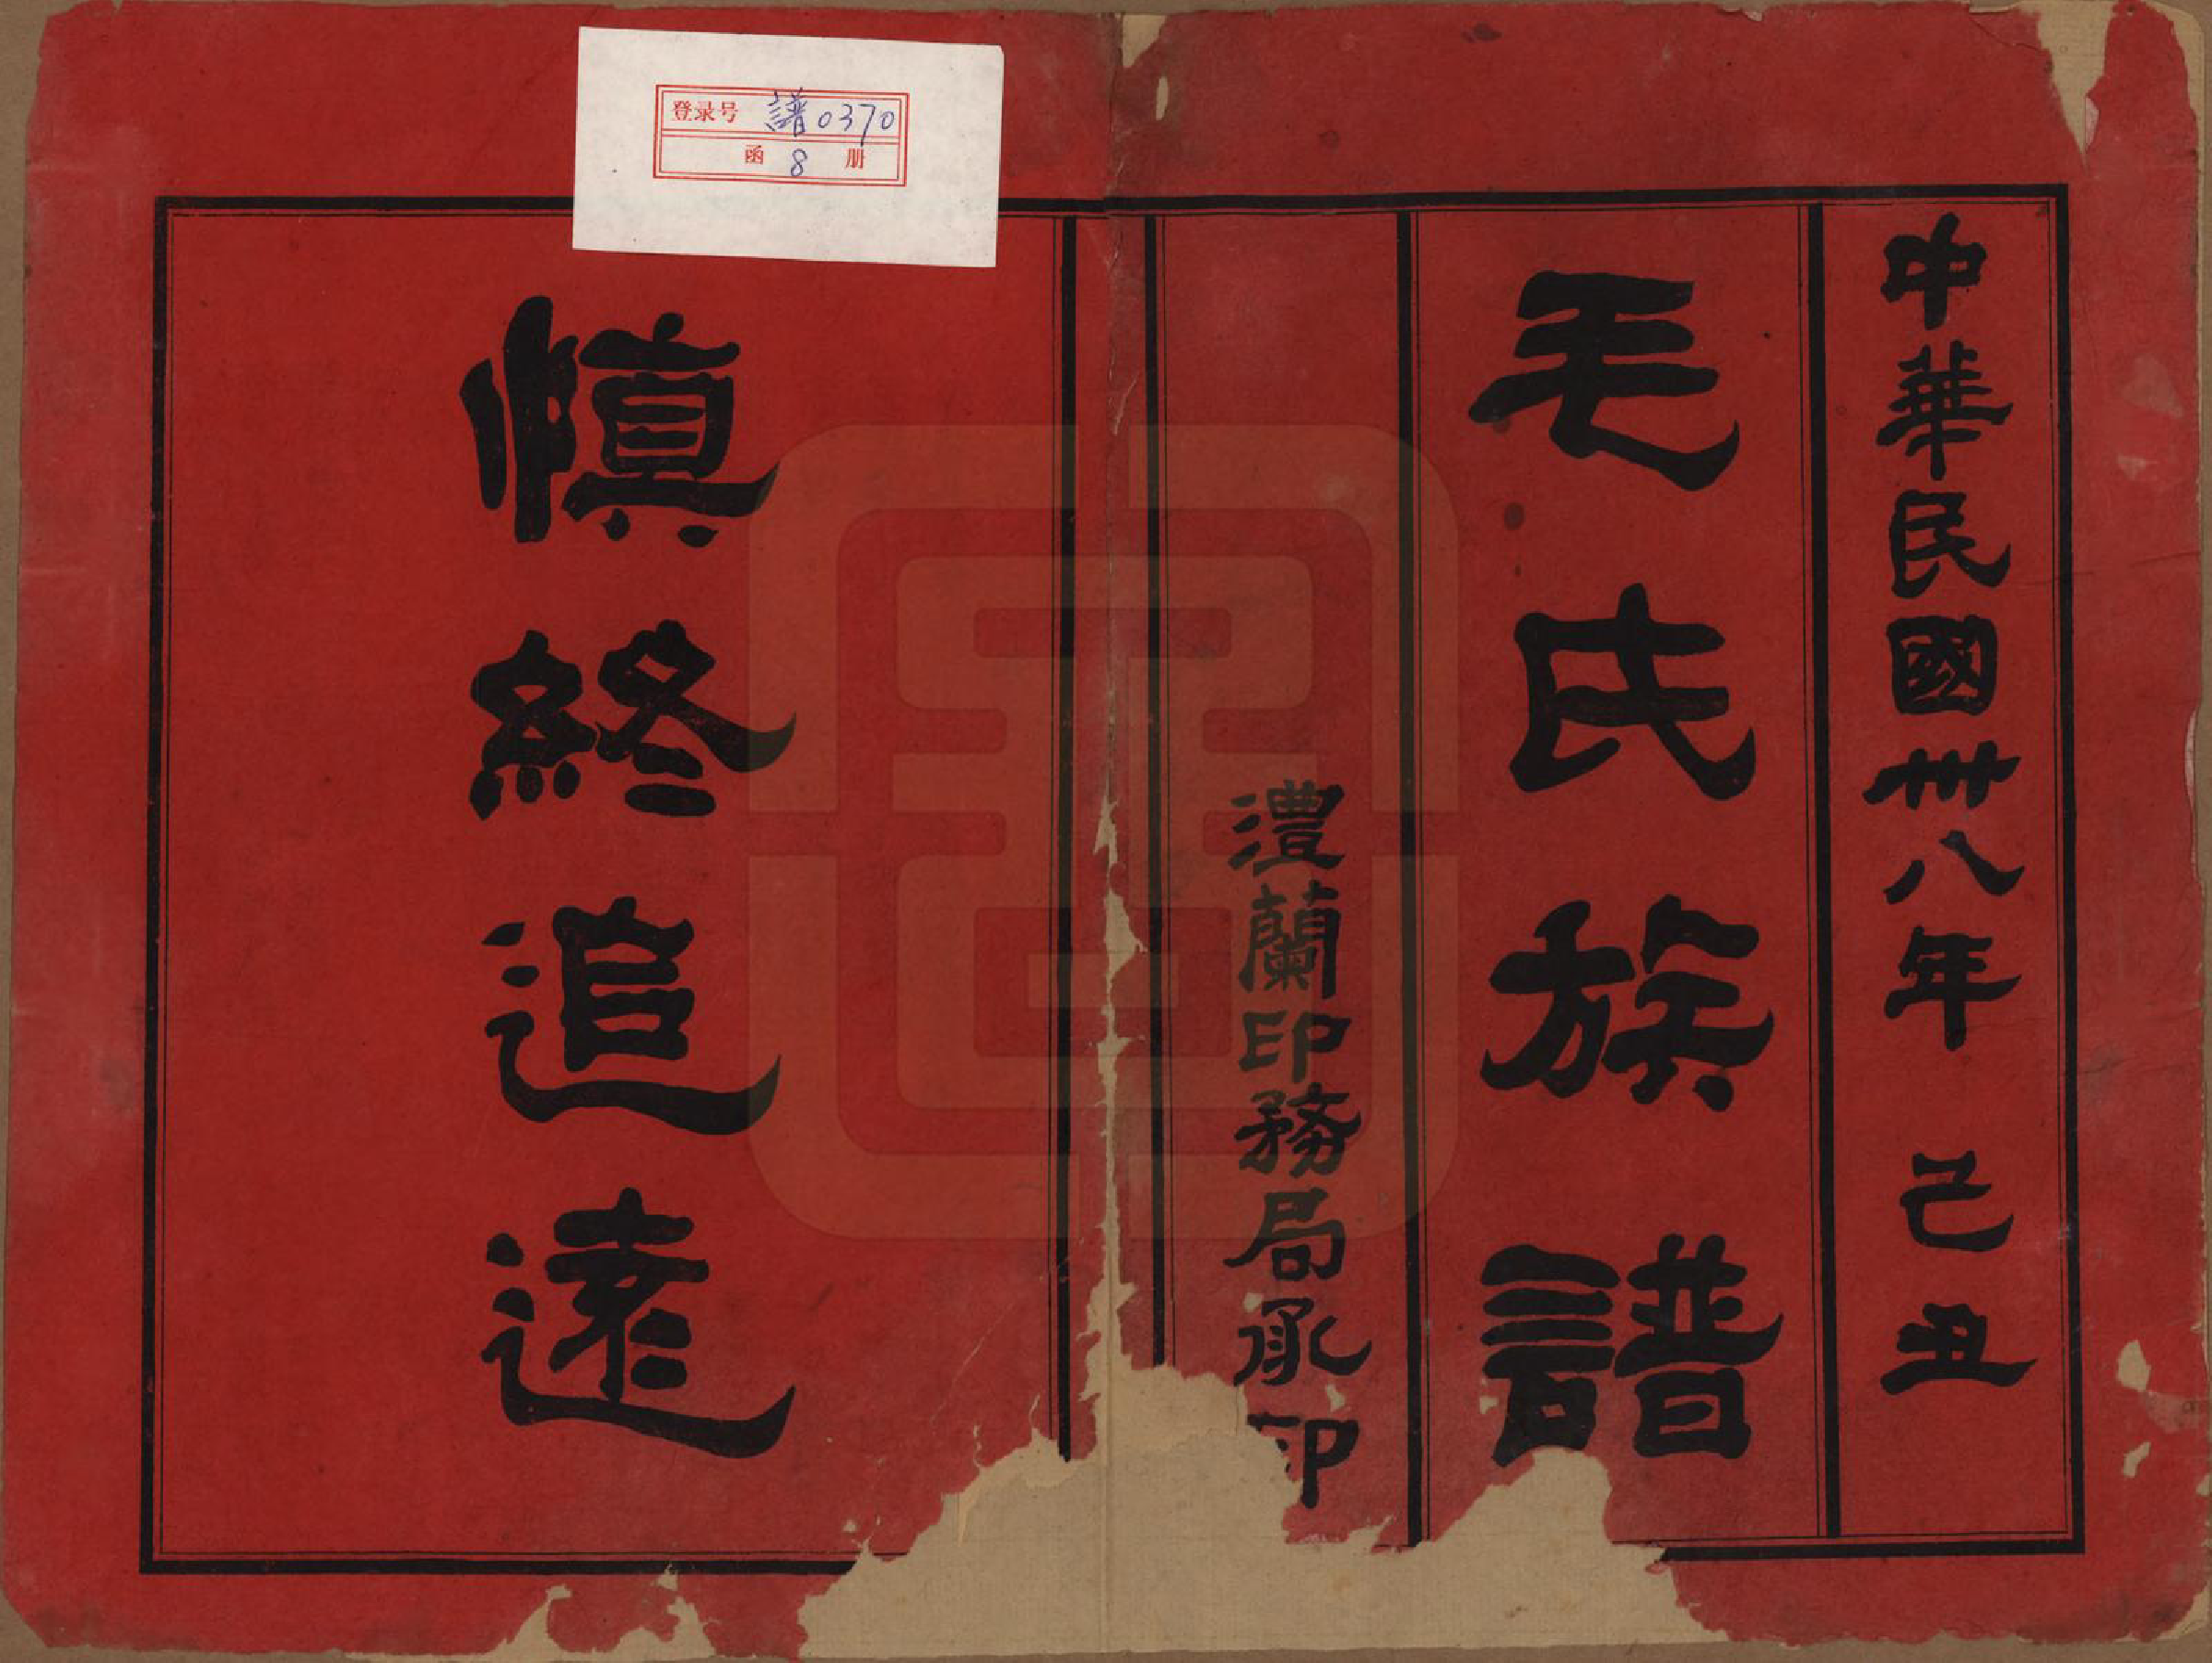 中華民國卅八年 己丑
毛氏族譜
澧蘭印務局承印
慎終追遠
登录号 譜0370
函 8 册